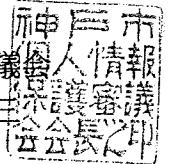 神戸市
個人情報
保護審議
会会長之印
義
三